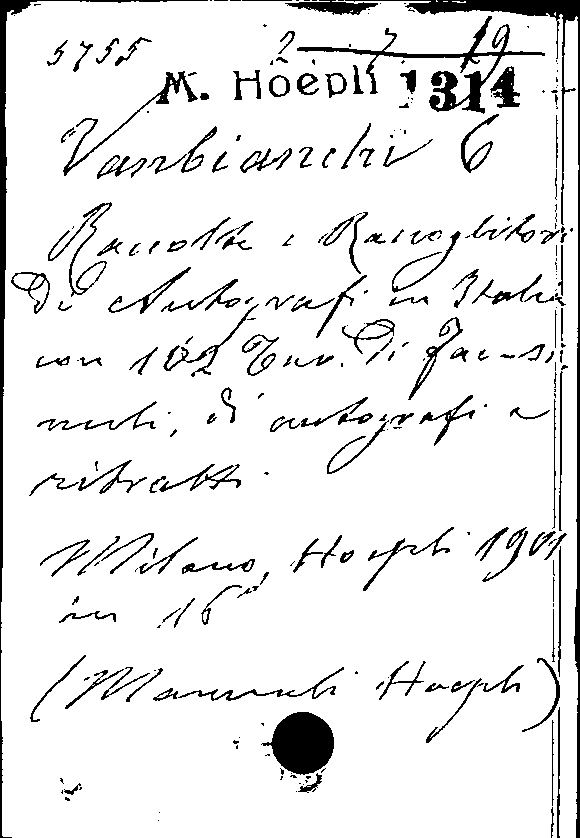 5755 2 7 19
M. Hoepli 1314
Vanbianchi C
Raccolte e Raccoglitori
Di Autografi in Italia
con 102 Tav. Di Fac-si
mili, di autografi e
ritratti.
Milano, Hoepli 1901
in 16°
(Manuali Hoepli)